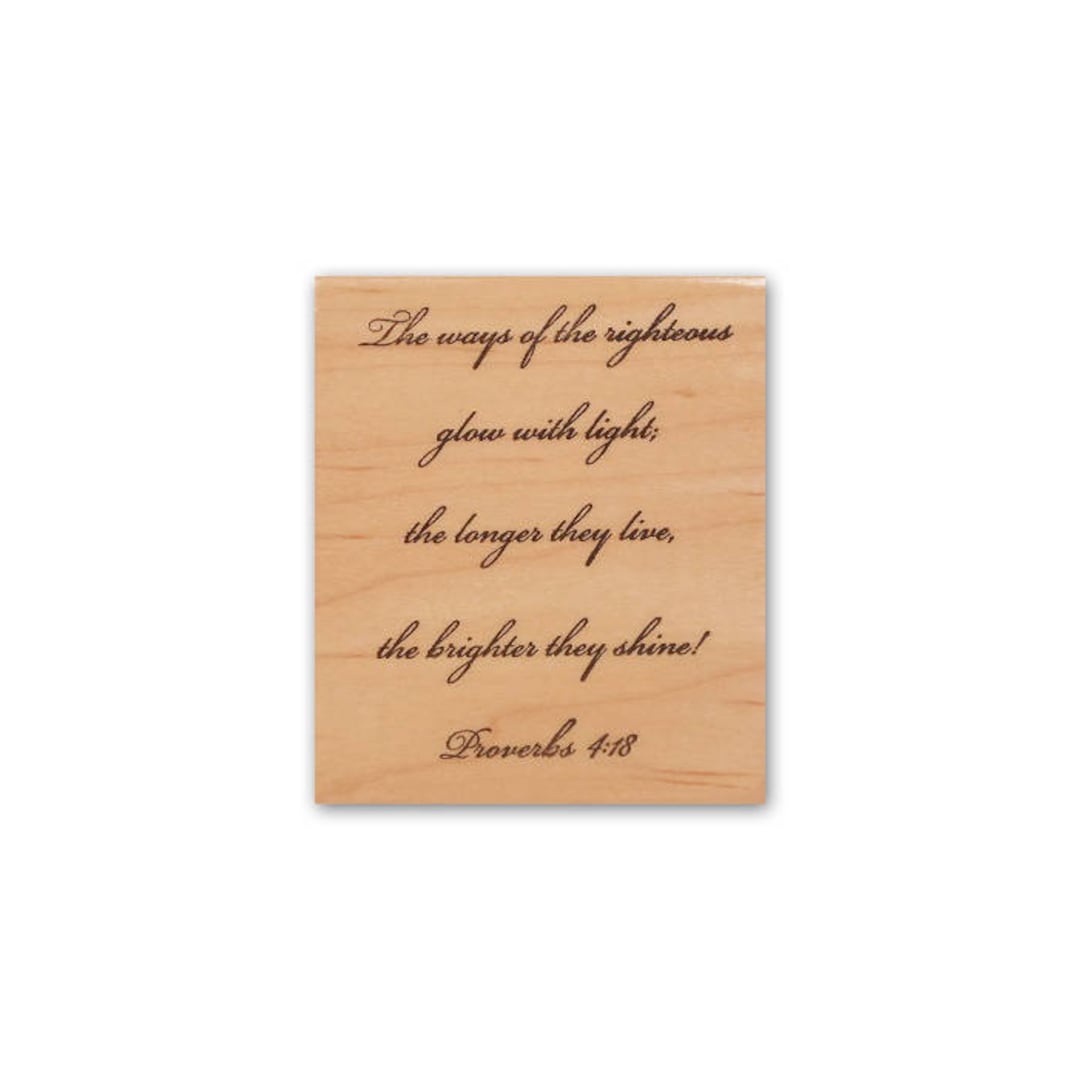 The ways of the righteous
glow with light;
the longer they live,
the brighter they shine!
Proverbs 4:18